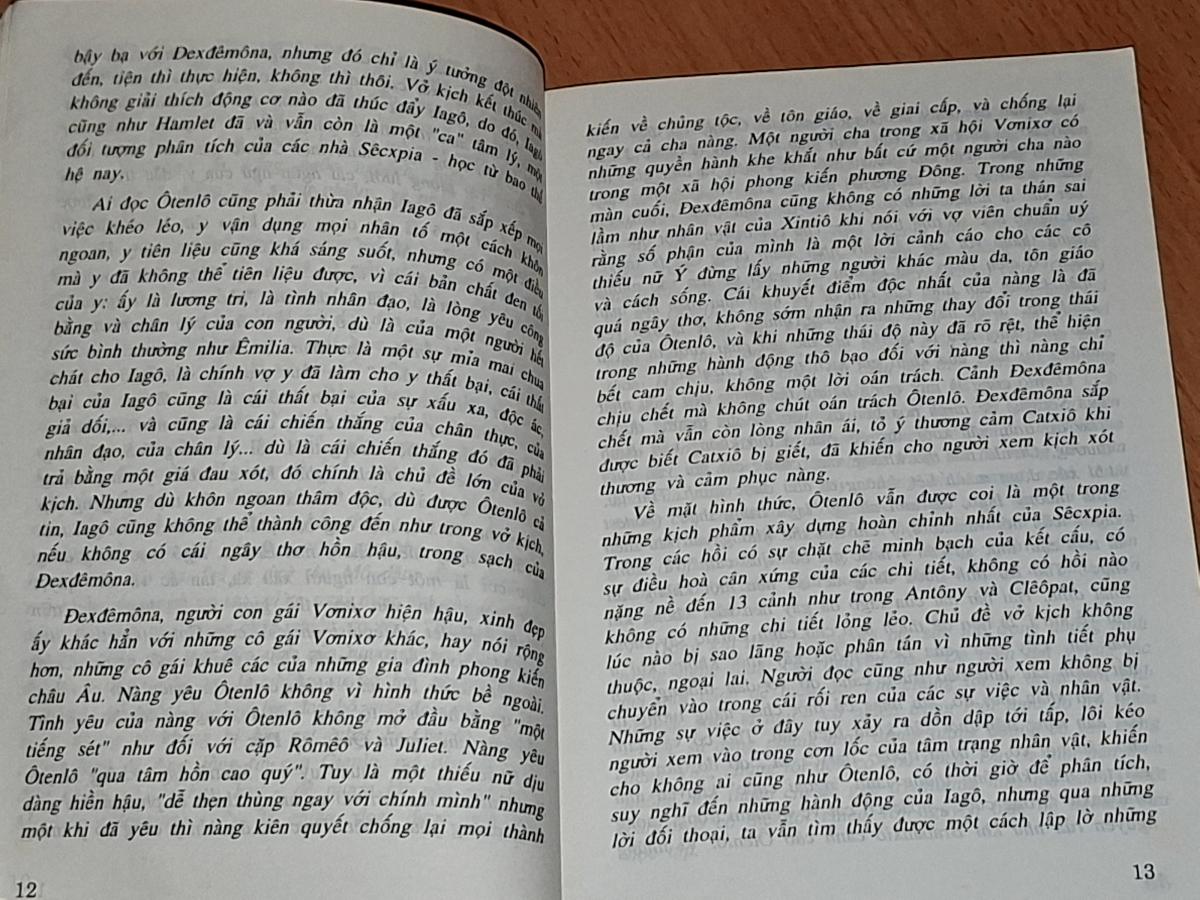 bậy bạ với Dexđêmôna, nhưng đó chỉ là ý tưởng đột nhiên
đến, tiện thì thực hiện, không thì thôi. Vở kịch kết thúc mà
không giải thích động cơ nào đã thúc đẩy Iagô, do đó, Iagô
cũng như Hamlet đã và vẫn còn là một "ca" tâm lý, một
đối tượng phân tích của các nhà Sêcxpia - học từ bao thế
hệ nay.
Ai đọc Ôtenlô cũng phải thừa nhận Iagô đã sắp xếp mọi
việc khéo léo, y vận dụng mọi nhân tố một cách khôn
ngoan, y tiên liệu cũng khá sáng suốt, nhưng có một điều
mà y đã không thể tiên liệu được, vì cái bản chất đen tối
của y: ấy là lương tri, là tình nhân đạo, là lòng yêu công
bằng và chân lý của con người, dù là của một người hết
sức bình thường như Êmilia. Thực là một sự mỉa mai chua
chát cho Iagô, là chính vợ y đã làm cho y thất bại, cái thất
bại của Iagô cũng là cái thất bại của sự xấu xa, độc ác,
giả dối,... và cũng là cái chiến thắng của chân thực, của
nhân đạo, của chân lý... dù là cái chiến thắng đó đã phải
trả bằng một giá đau xót, đó chính là chủ đề lớn của vở
kịch. Nhưng dù khôn ngoan thâm độc, dù được Ôtenlô cả
tin, Iagô cũng không thể thành công đến như trong vở kịch,
nếu không có cái ngây thơ hồn hậu, trong sạch của
Đexđêmôna.
Đexđêmôna, người con gái Vơnixơ hiện hậu, xinh đẹp
ấy khác hẳn với những cô gái Vơnixơ khác, hay nói rộng
hơn, những cô gái khuê các của những gia đình phong kiến
châu Âu. Nàng yêu Ôtenlô không vì hình thức bề ngoài.
Tình yêu của nàng với Ôtenlô không mở đầu bằng "một
tiếng sét" như đối với cặp Rômêô và Juliet. Nàng yêu
Ôtenlô "qua tâm hồn cao quý". Tuy là một thiếu nữ dịu
dàng hiền hậu, "dễ thẹn thùng ngay với chính mình" nhưng
một khi đã yêu thì nàng kiên quyết chống lại mọi thành
12
kiến về chủng tộc, về tôn giáo, về giai cấp, và chống lại
ngay cả cha nàng. Một người cha trong xã hội Vơnixơ có
những quyền hành khe khắt như bất cứ một người cha nào
trong một xã hội phong kiến phương Đông. Trong những
màn cuối, Đexđêmôna cũng không có những lời ta thán sai
lầm như nhân vật của Xintiô khi nói với vợ viên chuẩn uý
rằng số phận của mình là một lời cảnh cáo cho các cô
thiếu nữ Ý đừng lấy những người khác màu da, tôn giáo
và cách sống. Cái khuyết điểm độc nhất của nàng là đã
quá ngây thơ, không sớm nhận ra những thay đổi trong thái
độ của Ôtenlô, và khi những thái độ này đã rõ rệt, thể hiện
trong những hành động thô bạo đối với nàng thì nàng chỉ
bết cam chịu, không một lời oán trách. Cảnh Đexđêmôna
chịu chết mà không chút oán trách Ôtenlô. Đexđêmôna sắp
chết mà vẫn còn lòng nhân ái, tỏ ý thương cảm Catxiô khi
được biết Catxiô bị giết, đã khiến cho người xem kịch xót
thương và cảm phục nàng.
Về mặt hình thức, Ôtenlô vẫn được coi là một trong
những kịch phẩm xây dựng hoàn chỉnh nhất của Sêcxpia.
Trong các hồi có sự chặt chẽ minh bạch của kết cấu, có
sự điều hoà cân xứng của các chi tiết, không có hồi nào
nặng nề đến 13 cảnh như trong Antôny và Clêôpat, cũng
không có những chi tiết lỏng lẻo. Chủ đề vở kịch không
lúc nào bị sao lãng hoặc phân tán vì những tình tiết phụ
thuộc, ngoại lai. Người đọc cũng như người xem không bị
chuyển vào trong cái rối ren của các sự việc và nhân vật.
Những sự việc ở đây tuy xảy ra dồn dập tới tấp, lôi kéo
người xem vào trong cơn lốc của tâm trạng nhân vật, khiến
cho không ai cũng như Ôtenlô, có thời giờ để phân tích,
suy nghĩ đến những hành động của Iagô, nhưng qua những
lời đối thoại, ta vẫn tìm thấy được một cách lập lờ những
13